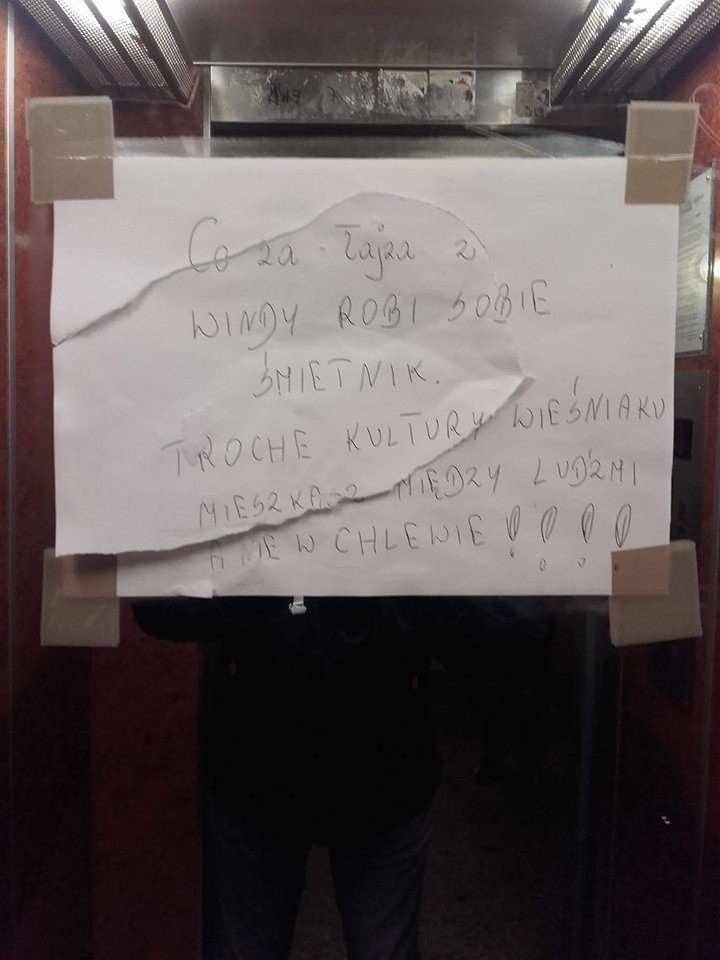 Co za łajza z
WINDY ROBI SOBIE
ŚMIETNIK.
TROCHE KULTURY WIEŚNIAKU
MIESZKASZ MIĘDZY LUDŹMI
A NIE W CHLEWIE !!!!